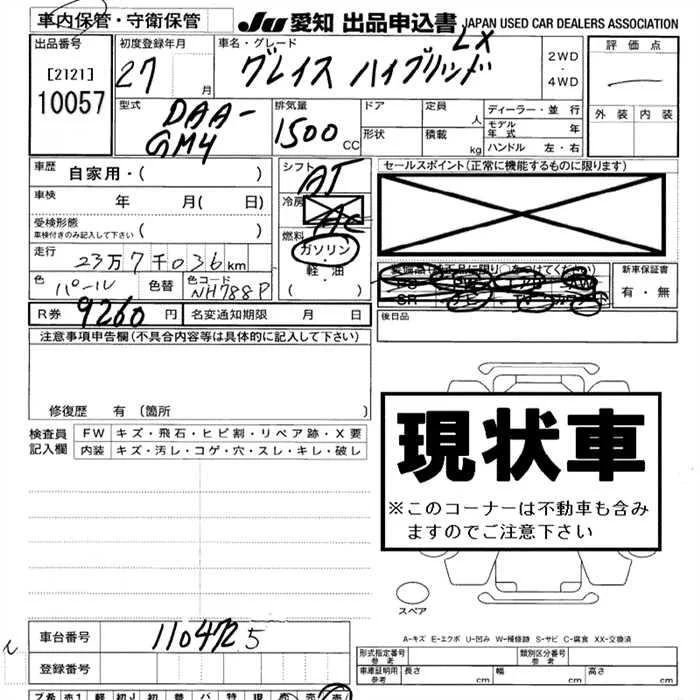 車内保管・守衛保管
JU 愛知 出品申込書 JAPAN USED CAR DEALERS ASSOCIATION
出品番号
[2121]
10057
初度登録年月
27 月
車名・グレード
グレイス ハイブリッド LX
2WD
・
4WD
評価点
外装 内装
型式
DAA-
GM4
排気量
1500 CC
ドア
形状
定員 人
積載 kg
ディーラー・並 行
モデル年式 年
ハンドル 左・右
車歴 自家用・( )
車検 年 月( 日)
受検形態
車検付きのみ記入して下さい ( )
走行 23万7千036km
色 パール
色替
色コード NH788P
シフト AT
冷房 AC
燃料
ガソリン
・
軽・油
( )
セールスポイント(正常に機能するものに限ります)
新車保証書
有・無
後日品
R券 9260 円
名変通知期限 月 日
注意事項申告欄(不具合内容等は具体的に記入して下さい)
修復歴 有(箇所 )
検査員
記入欄
FW キズ・飛石・ヒビ割・リペア跡・X要
内装 キズ・汚レ・コゲ・穴・スレ・キレ・破レ
現状車
※このコーナーは不動車も含み
ますのでご注意下さい
スペア
A-キズ E-エクボ U-凹み W-補修跡 S-サビ C-腐食 XX-交換済
車台番号 1104725
登録番号
形式指定番号
参考
類別区分番号
参考
車庫証明用
参考
長さ cm
幅 cm
高さ cm